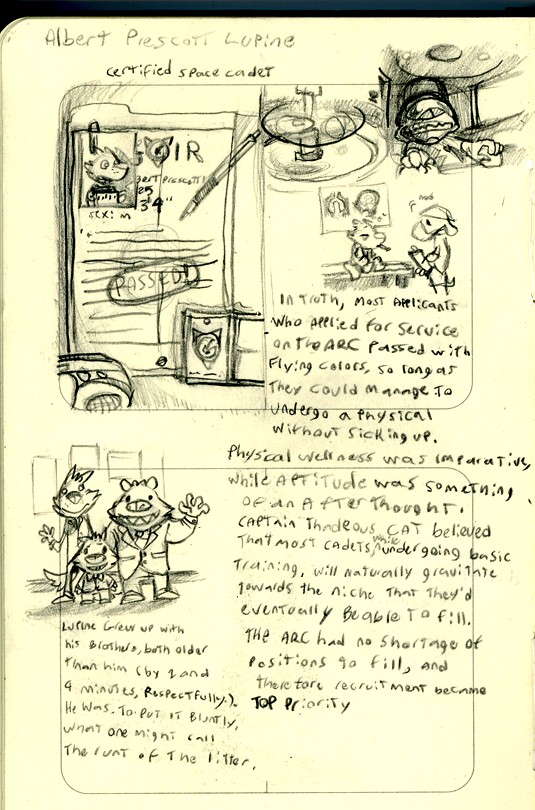 Albert Prescott Lupine
certified space cadet
OIR
ert prescott
25
3'4"
sex: m
PASSED!
In Truth, most Applicants
who applied for service
on the ARC passed with
Flying colors, so long as
They could manage To
undergo a physical
without sicking up.
Physical wellness was imparative,
while APTitude was something
of an AfterThought.
Captain Thadeous CAT believed
That most cadets, while undergoing basic
Training, will naturally gravitate
towards the niche That they'd
eventually Be able To fill.
The ARC had no shortage of
positions to fill, and
therefore recruitment became
TOP Priority
Lupine Grew up with
his Brothers, both older
Than him (by 2 and
4 minutes, Respectfully.).
He was. To Put it Bluntly,
what one might call
The runt of The litter.